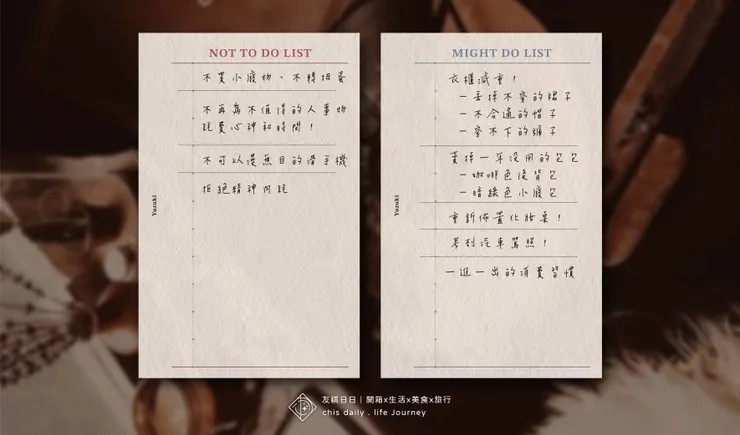 NOT TO DO LIST
不買小廢物、不轉扭蛋
不再為不值得的人事物
耗費心神和時間！
不可以漫無目的滑手機
拒絕精神內耗
Yuzuki
MIGHT DO LIST
衣櫃減重！
－丟掉不穿的裙子
－不合適的帽子
－穿不下的褲子
賣掉一年沒用的包包
－咖啡色後背包
－暗綠色小廢包
重新佈置化妝桌！
考到汽車駕照！
一進一出的消費習慣
Yuzuki
友穎日日｜開箱x生活x美食x旅行
chis daily . life Journey